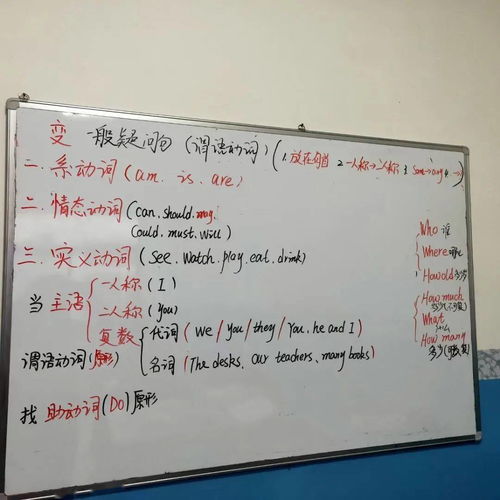 变 一般疑问句 (谓语动词) (1. 放在句首 2. 一人称→二人称 3. some→any 4.
一. 系动词 (am. is. are)
二. 情态动词 (can. should. may.
could. must. will)
三. 实义动词 (see. watch. play. eat. drink)
当 主语 一人称 (I)
二人称 (you)
复数 代词 (we / you / they / You, he and I)
谓语动词 (原形) 名词 (The desks, our teachers, many books)
找 助动词 (Do) 原形
Who 谁
Where 哪里
How old 多少岁
How much
多少 (不可数)
What
什么
How many
多少 (可数,复)